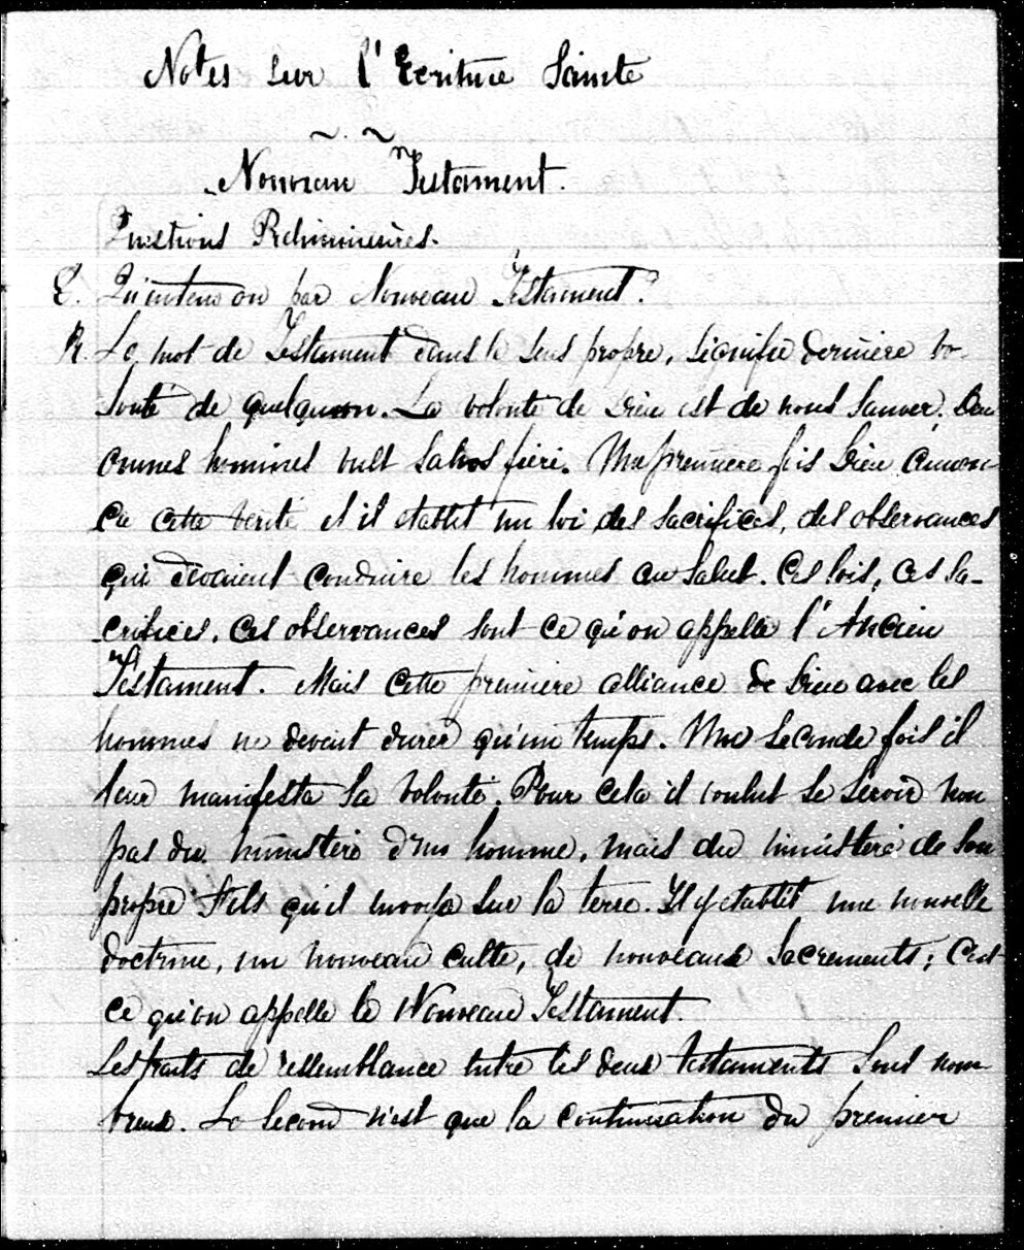 Notes sur l'Ecriture Sainte
Nouveau Testament.
Questions Preliminaires.
Q. Qu'entend on par Nouveau Testament?
R. Le mot de Testament dans le sens propre, signifie dernière vo-
lonté de quelqu'un. La volonté de Dieu est de nous sauver. Deus
omnes homines vult salvos fieri. Une première fois Dieu annon-
ca cette verité et il etablit un loi des sacrifices, des observances
qui devaient conduire les hommes au salut. Ces lois, ces sa-
crifices, ces observances sont ce qu'on appelle l'Ancien
Testament. Mais cette première alliance de Dieu avec les
hommes ne devait durer qu'un temps. Une seconde fois il
leur manifesta sa volonté. Pour cela il voulut se servir non
pas du ministère d'un homme, mais du ministère de son
propre Fils qu'il envoya sur la terre. Il y etablit une nouvelle
doctrine, un nouveau culte, de nouveaux sacrements; C'est
ce qu'on appelle le Nouveau Testament.
Les traits de ressemblance entre les deux testaments sont nom-
breux. Le second n'est que la continuation du premier